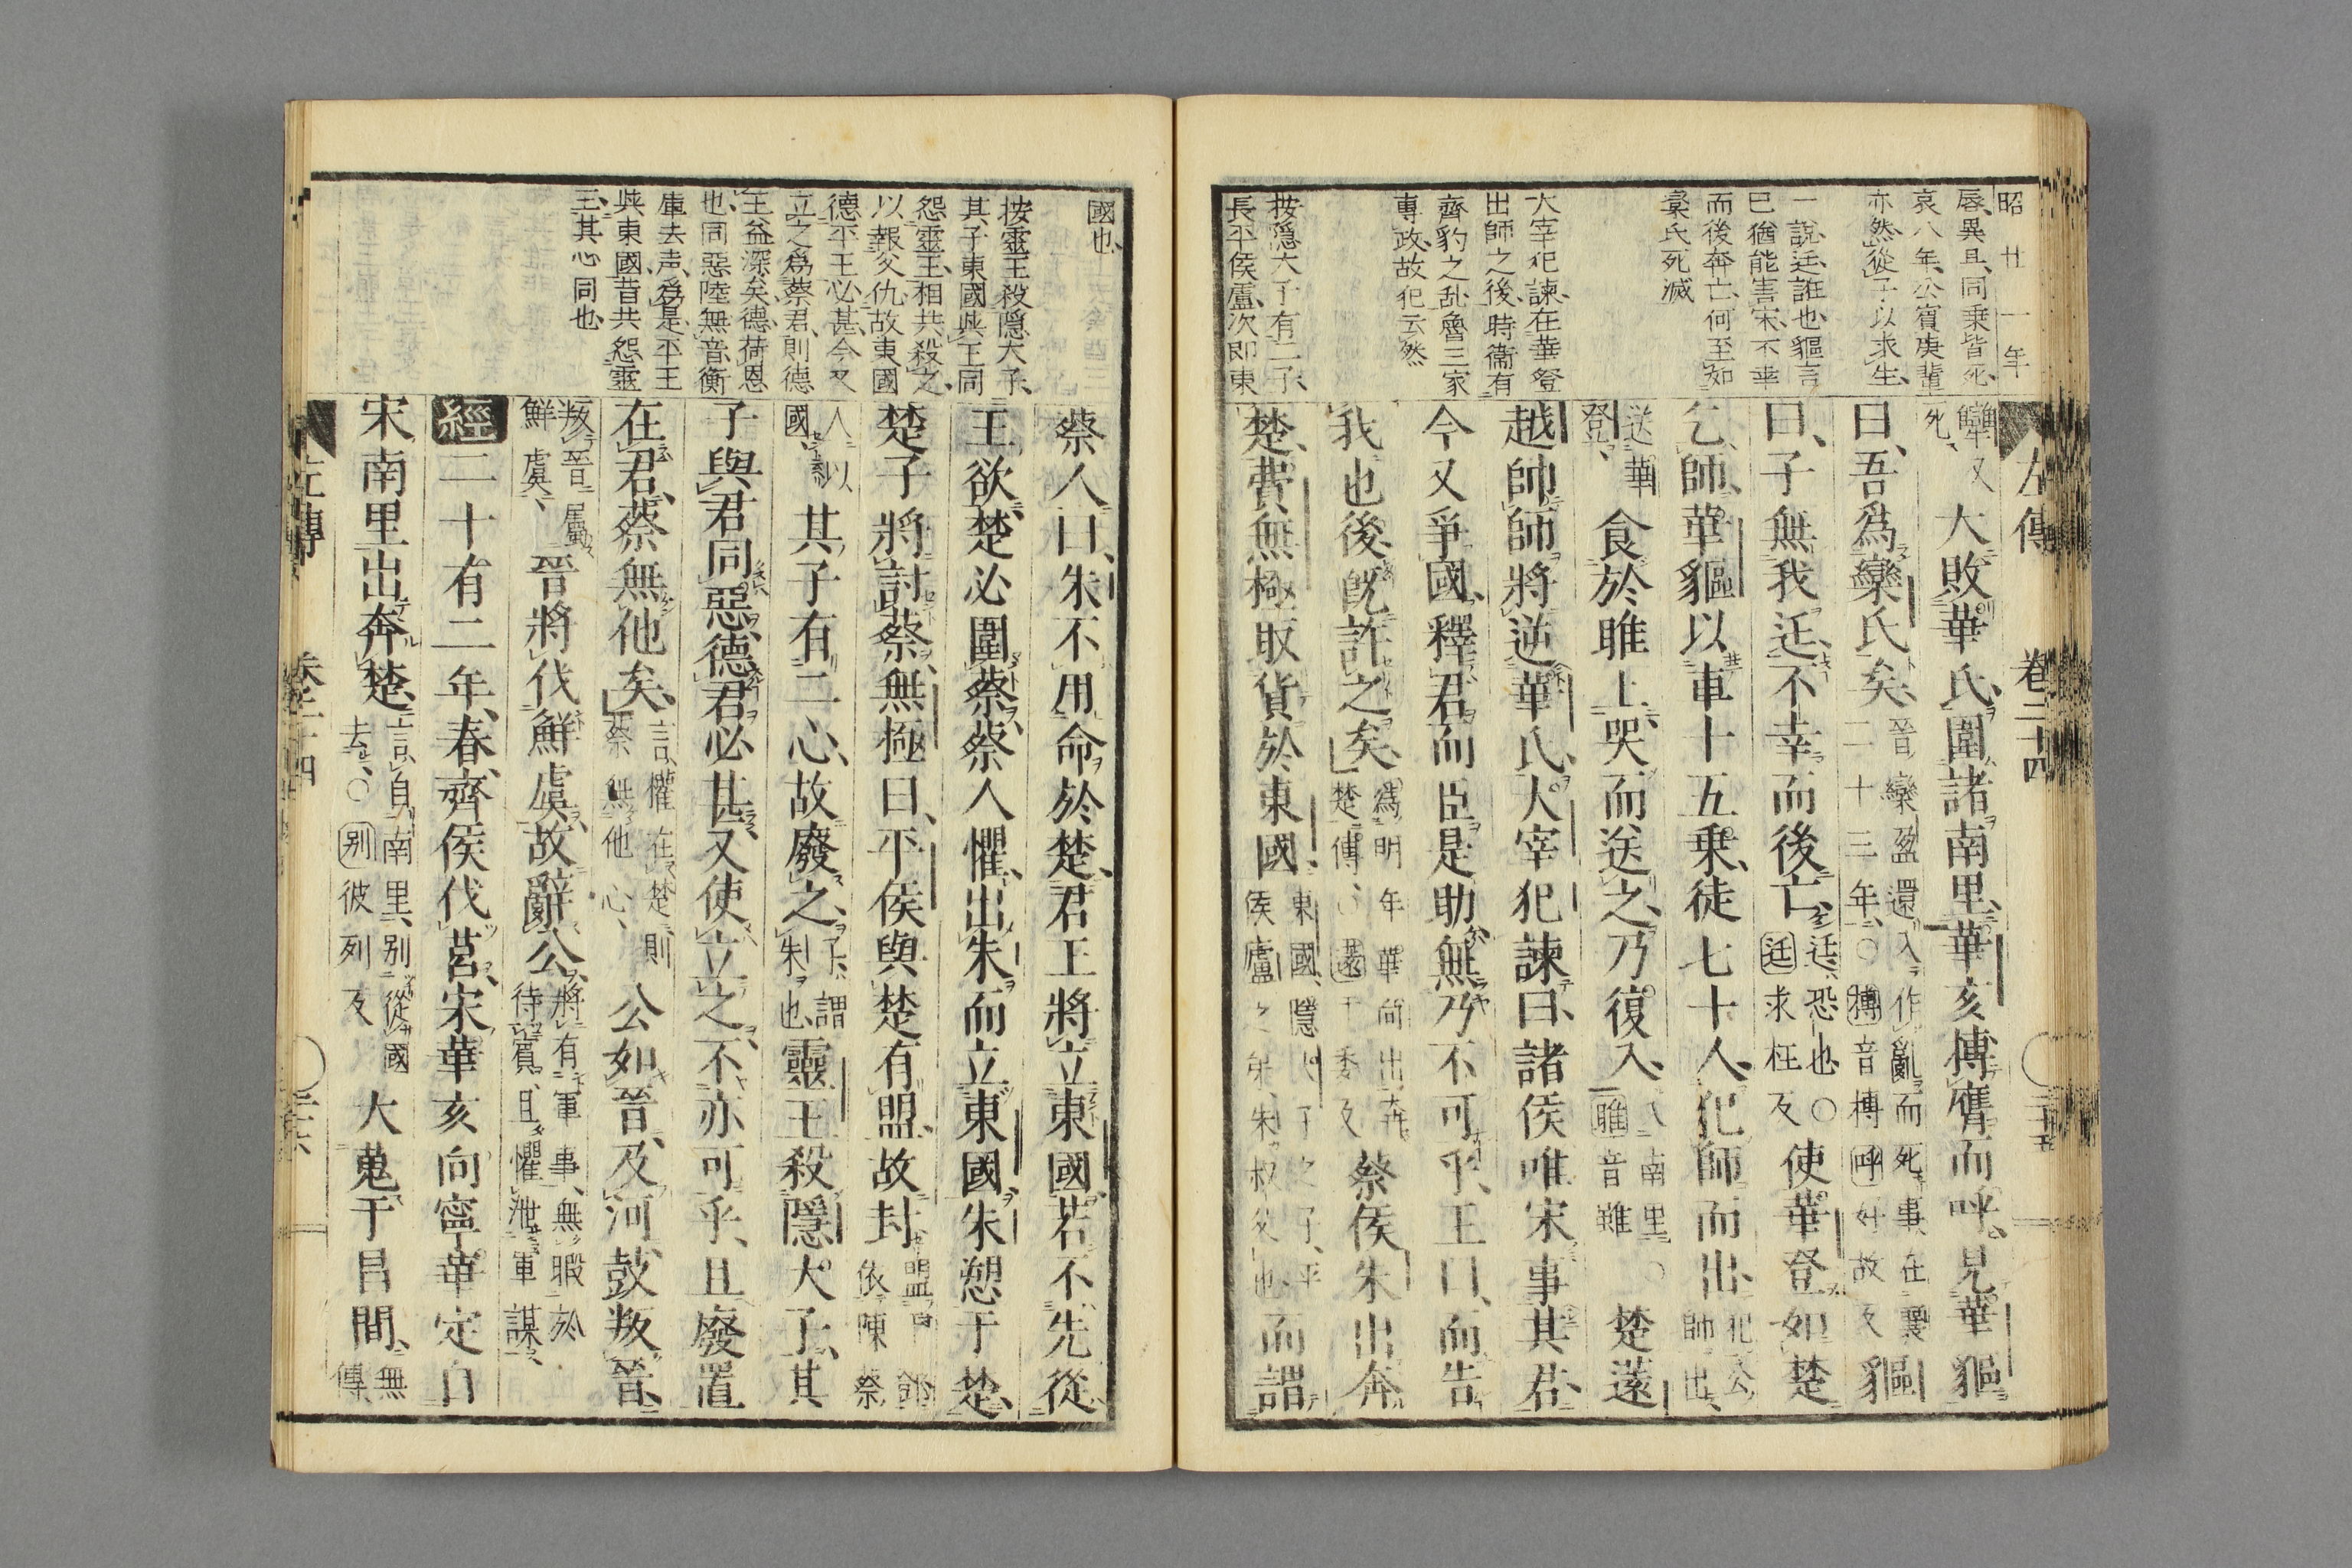 昭廿一年
辱、異且、同乗皆死、
哀八年、公賓庚輩
亦然、從子以求生、
一說、迋誑也、貙言
已猶能害宋、不幸
而後奔亡、何至如
欒氏死滅
大宰犯諫、在華登
出師之後、時衞有
齊豹之乱、魯三家
専政、故犯云然
按隱大子有二子、
長平侯廬、次即東
左傳 卷二十四 二十五
犨又
死、
大敗華氏、圍諸南里、華亥搏膺而呼、見華貙
曰、吾爲欒氏矣、
晉欒盈還入作亂而死、事在襄
二十三年、○搏音博呼好故反
貙
曰、子無我迋、不幸而後亡、
迋、恐也、○
迋求枉反
使華登如楚
乞師、華貙以車十五乗、徒七十人、犯師而出、
犯公
師出、
送華
登、
食於睢上、哭而送之、乃復入、
入南里、○
睢音雖
楚薳
越帥師、將逆華氏、大宰犯諫曰、諸侯唯宋事其君、
今又爭國、釋君而臣是助、無乃不可乎、王曰、而告
我也後、既許之矣、
爲明年華向出奔
楚傳、○薳于委反
蔡侯朱出奔
楚、費無極取貨於東國、
東國、隱大子之子、平
侯廬之弟、朱叔父也
而謂
國也、
按靈王殺隱大子、
其子東國與王同
怨靈王、相共殺之、
以報父仇、故東國
德平王必甚、今又
立之爲蔡君、則德
王益深矣、德、荷恩
也、同惡、陸無音、衡
庫去声、爲是、平王
與東國、昔共怨靈
王、其心同也、
蔡人曰、朱不用命於楚、君王將立東國、若不先從
王欲、楚必圍蔡、蔡人懼、出朱而立東國、朱愬于楚、
楚子將討蔡、無極曰、平侯與楚有盟、故封、
盟于鄧
依陳蔡
人以
國、
其子有二心、故廢之、
子、謂
朱也、
靈王殺隱大子、其
子與君同惡、德君必甚、又使立之、不亦可乎、且廢置
在君、蔡無他矣、
言權在楚、則
蔡無他心、
公如晉、及河、鼓叛晉、
叛晉屬
鮮虞、
晉將伐鮮虞、故辭公、
將有軍事、無暇於
待賓、且懼泄軍謀、
經二十有二年、春、齊侯伐莒、宋華亥向寧華定自
宋南里出奔楚、
言自南里、别從國
去、○别彼列反
大蒐于昌間、
無
傳
左傳 卷二十四 二十六